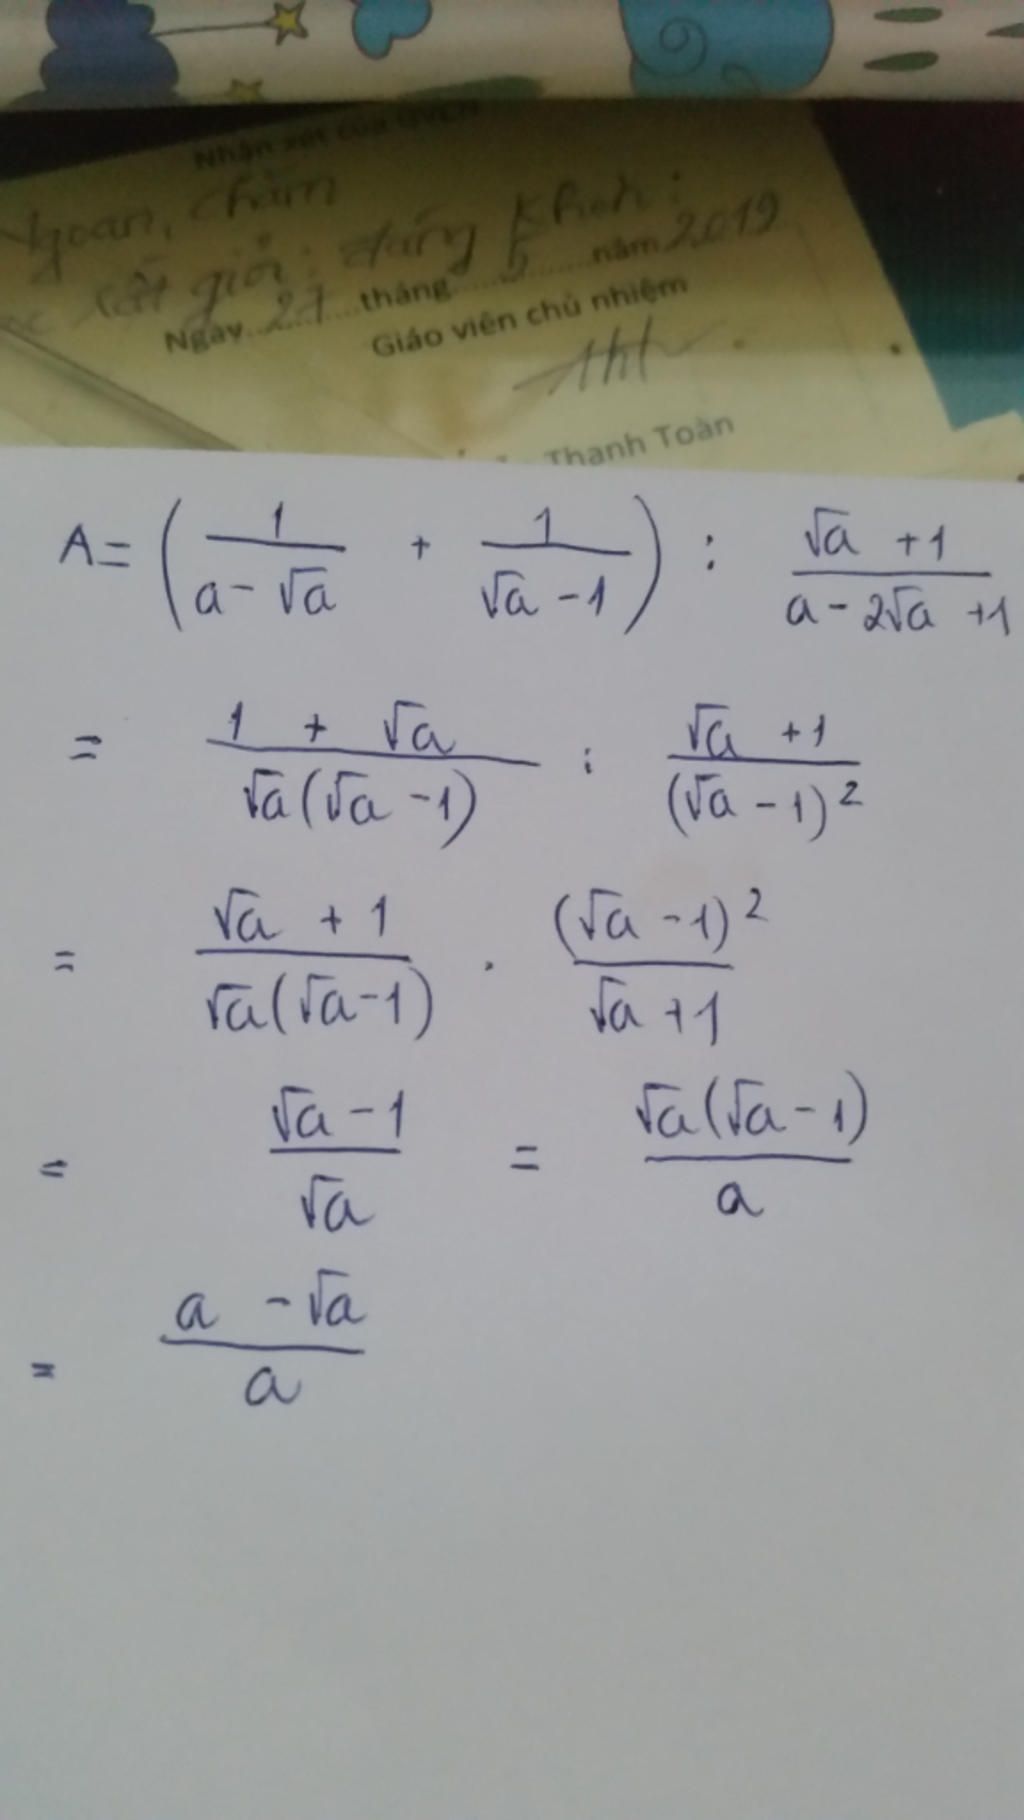 Nhận xét của GVCN
Ngoan, chăm
giỏi; đáng khen;
Ngày 27 tháng 5 năm 2019
Giáo viên chủ nhiệm
Thanh Toàn
A = (1/(a - √a) + 1/(√a - 1)) : (√a + 1)/(a - 2√a + 1)
= (1 + √a)/(√a(√a - 1)) : (√a + 1)/(√a - 1)²
= (√a + 1)/(√a(√a - 1)) . (√a - 1)²/(√a + 1)
= (√a - 1)/√a = √a(√a - 1)/a
= (a - √a)/a